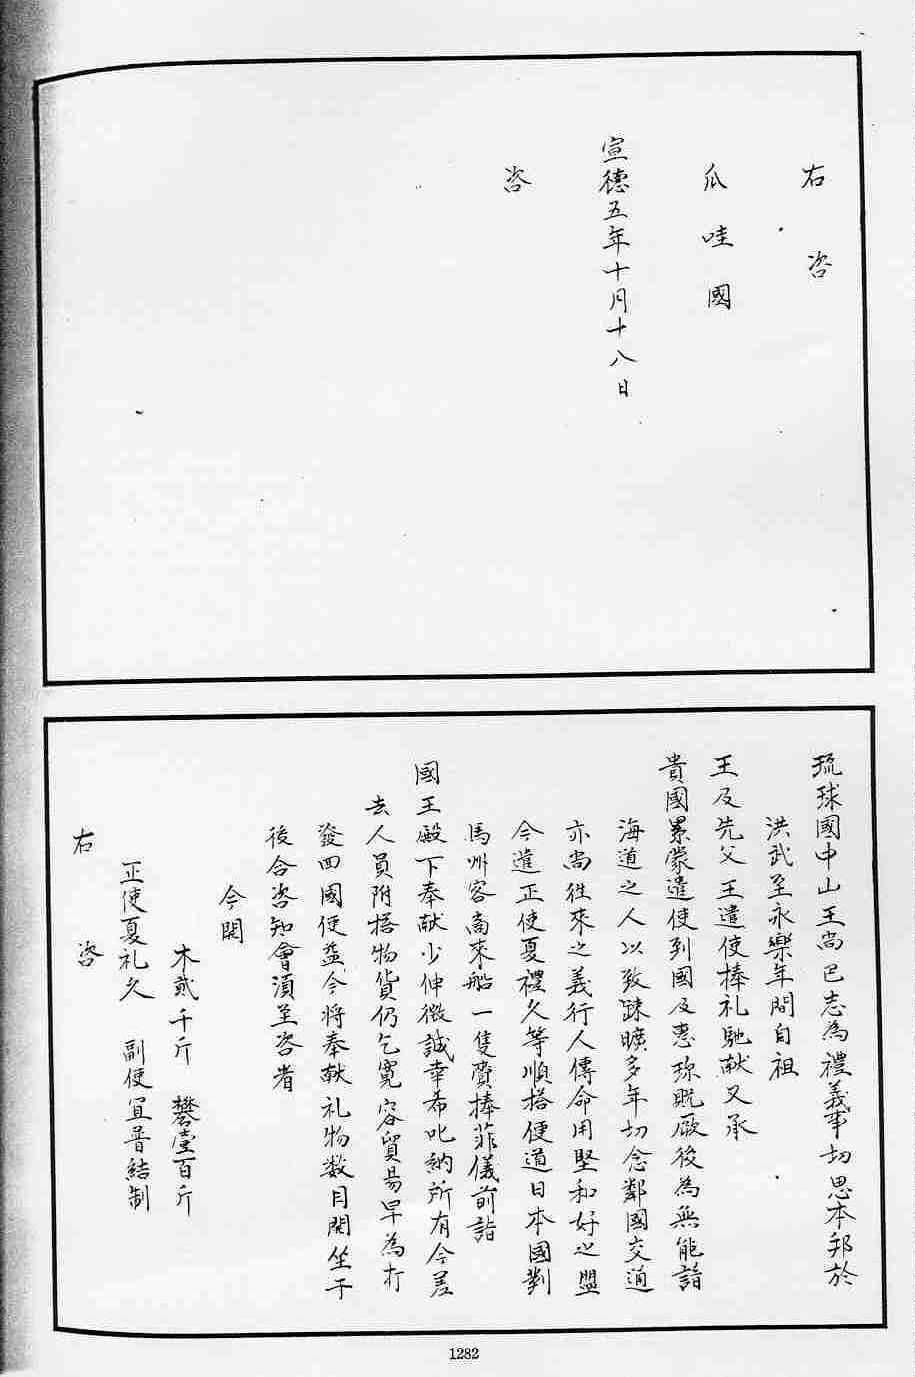 右咨
爪哇國
宣德五年十月十八日
咨
琉球國中山王尚巴志為禮義事切思本邦於
洪武至永樂年間自祖
王及先父王遣使捧礼馳献又承
貴國累蒙遣使到國及惠珎貺厥後為無能諳
海道之人以致踈曠多年切念鄰國交通
亦尚徃來之義行人傳命用堅和好之盟
今遣正使夏禮久等順搭便道日本國對
馬州客商來船一隻賷捧菲儀前詣
國王殿下奉献少伸微誠幸希叱納所有今差
去人員附搭物貨仍乞寛容貿昜早為打
發囬國便益今將奉献礼物数目開坐于
後合咨知會湏至咨者
今開
木貳千斤 礬壹百斤
正使夏礼久 副使宜普結制
右咨
1282